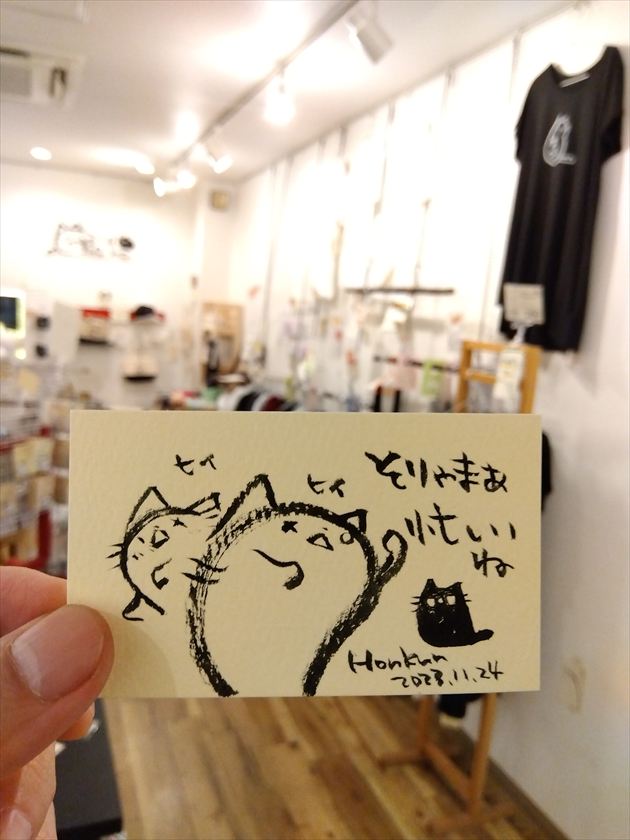 ヒィ
ヒィ
そりゃまあ
忙しい
ね
Honkun
2023.11.24